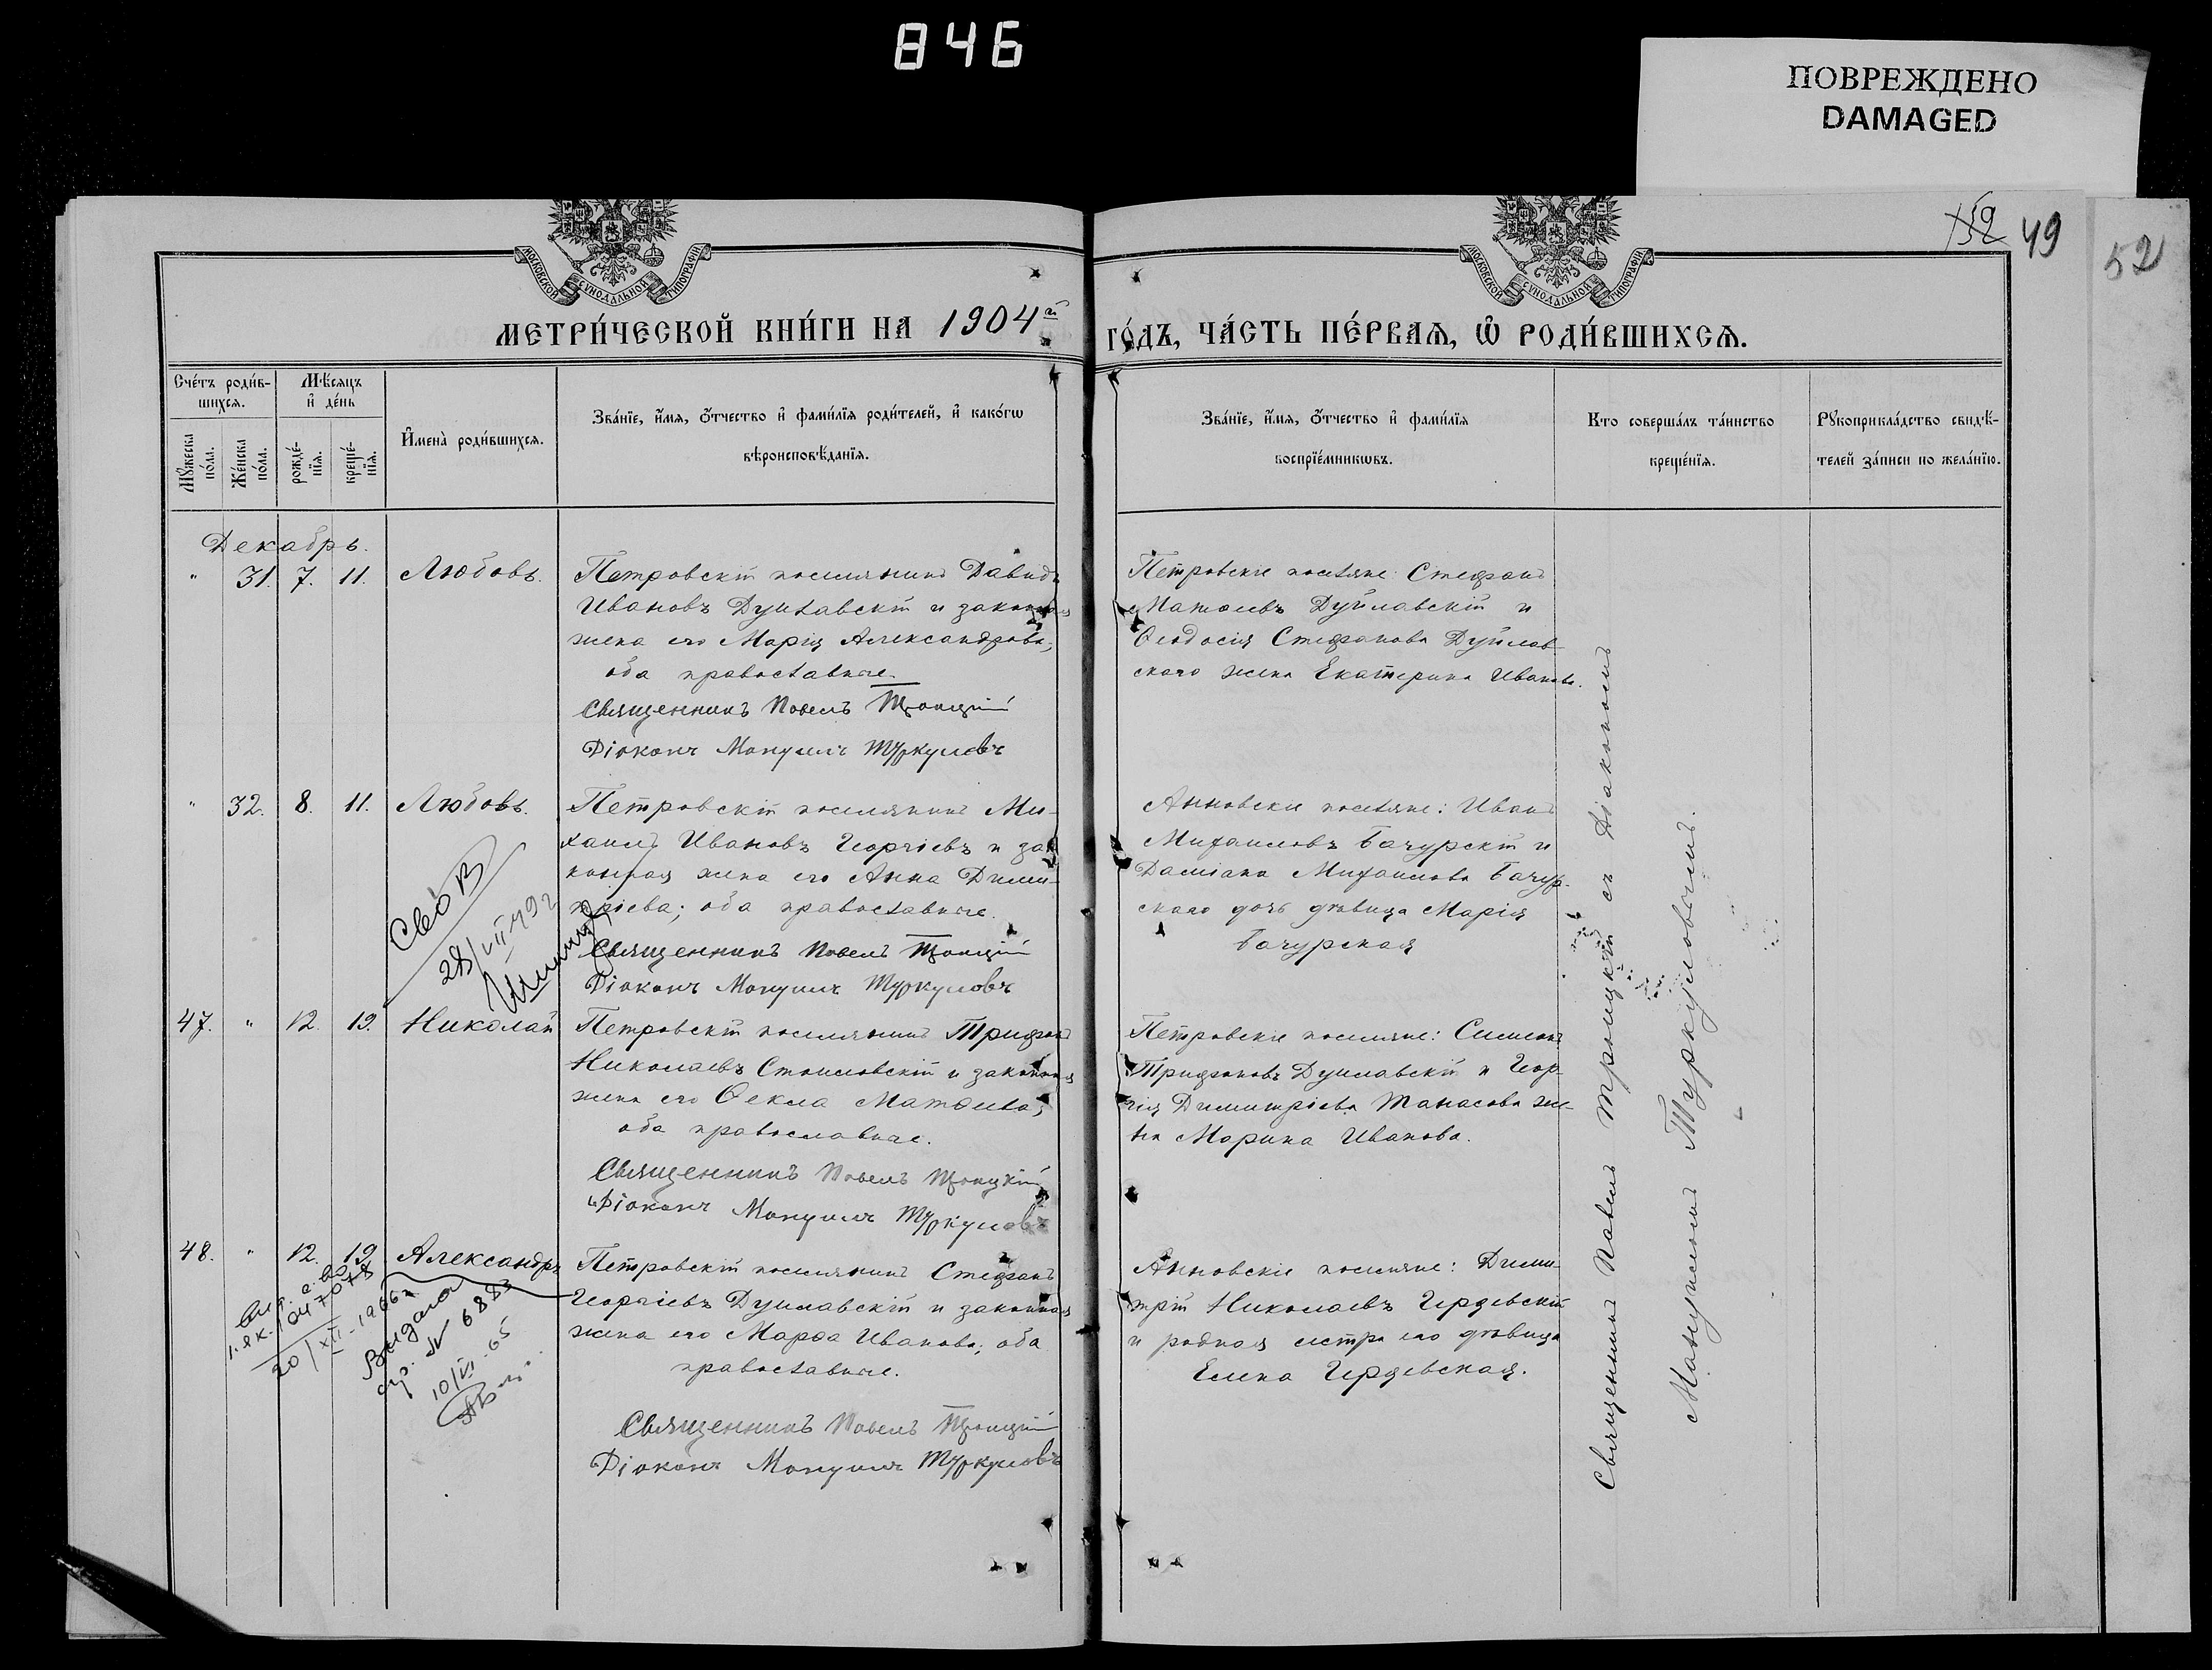 846
ПОВРЕЖДЕНО
DAMAGED
МОСКОВСКОЙ СУНОДАЛЬНОЙ ТИПОГРАФІИ
МОСКОВСКОЙ СУНОДАЛЬНОЙ ТИПОГРАФІИ
152 49
52
МЕТРИ́ЧЕСКОЙ КНИ́ГИ НА 1904й
ГО́ДЪ, ЧА́СТЬ ПЕ́РВАѦ, Ѡ РОДИ́ВШИХСѦ.
Сче́тъ роди́в-
шихсѧ.
Мѣ́сѧцъ
и де́нь
Мꙋ́жеска
по́ла.
Же́нска
по́ла.
рожде́-
нїѧ.
креще́-
нїѧ.
Имена̀ роди́вшихсѧ.
Зва́нїе, и́мѧ, о́тчество и фами́лїѧ роди́телей, и како́гѡ
вѣроисповѣ́данїѧ.
Зва́нїе, и́мѧ, о́тчество и фами́лїѧ
воспрїе́мникѡвъ.
Кто соверша́лъ та́инство
креще́нїѧ.
Рꙋкоприкла́дство свидѣ́-
телей за́писи по жела́нїю.
Декабрь.
" 31. 7. 11. Любовь.
Петровскій поселянинъ Давидъ
Ивановъ Дуйлавскій и законная
жена его Марія Александрова,
оба православные.
Священникъ Павелъ Троицкій
Діаконъ Мануилъ Туркуловъ
Петровскіе поселяне: Стефанъ
Матѳеевъ Дуйлавскій и
Ѳеодосія Стефанова Дуйлав-
скаго жена Екатерина Иванова.
" 32. 8. 11. Любовь.
Петровскій поселянинъ Ми-
хаилъ Ивановъ Георгіевъ и за-
конная жена его Анна Дими-
тріева; оба православные.
Священникъ Павелъ Троицкій
Діаконъ Мануилъ Туркуловъ
СвоВ
28/VII 49 г
Анновскіе поселяне: Иванъ
Михаиловъ Бачурскій и
Даміана Михаилова Бачур-
скаго дочь дѣвица Марія
Бачурская
47. " 12. 19. Николай
Петровскій поселянинъ Трифонъ
Николаевъ Стоиловскій и законная
жена его Ѳекла Матѳеева,
оба православные.
Священникъ Павелъ Троицкій
Діаконъ Мануилъ Туркуловъ
Петровскіе поселяне: Симеонъ
Трифоновъ Дуйлавскій и Геор-
гія Димитріева Танасова же-
на Марина Иванова.
48. " 12. 19 Александръ
Петровскій поселянинъ Стефанъ
Георгіевъ Дуйлавскій и законная
жена его Марѳа Иванова; оба
православные.
Священникъ Павелъ Троицкій
Діаконъ Мануилъ Туркуловъ
20/XII-1966 г
Выдана
спр. № 6883
10/VI-65
Анновскіе поселяне: Дими-
трій Николаевъ Гердевскій
и родная сестра его дѣвица
Елена Гердевская.
Священникъ Павелъ Троицкій съ діакономъ
Мануиломъ Туркуловымъ.